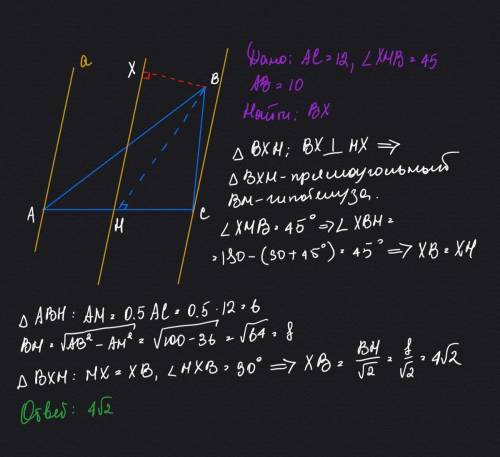 a
X
B
A
M
C
Дано: AC = 12, ∠XMB = 45
AB = 10
Найти: BX
△ BXM; BX ⊥ MX ⟹
△ BXM - прямоугольный
BM - гипотенуза.
∠XMB = 45° ⟹ ∠XBM =
= 180 - (90 + 45°) = 45° ⟹ XB = XM
△ ABM: AM = 0.5 AC = 0.5 · 12 = 6
BM = √(AB² - AM²) = √(100 - 36) = √64 = 8
△ BXM: MX = XB, ∠MXB = 90° ⟹ XB = BM/√2 = 8/√2 = 4√2
Ответ: 4√2